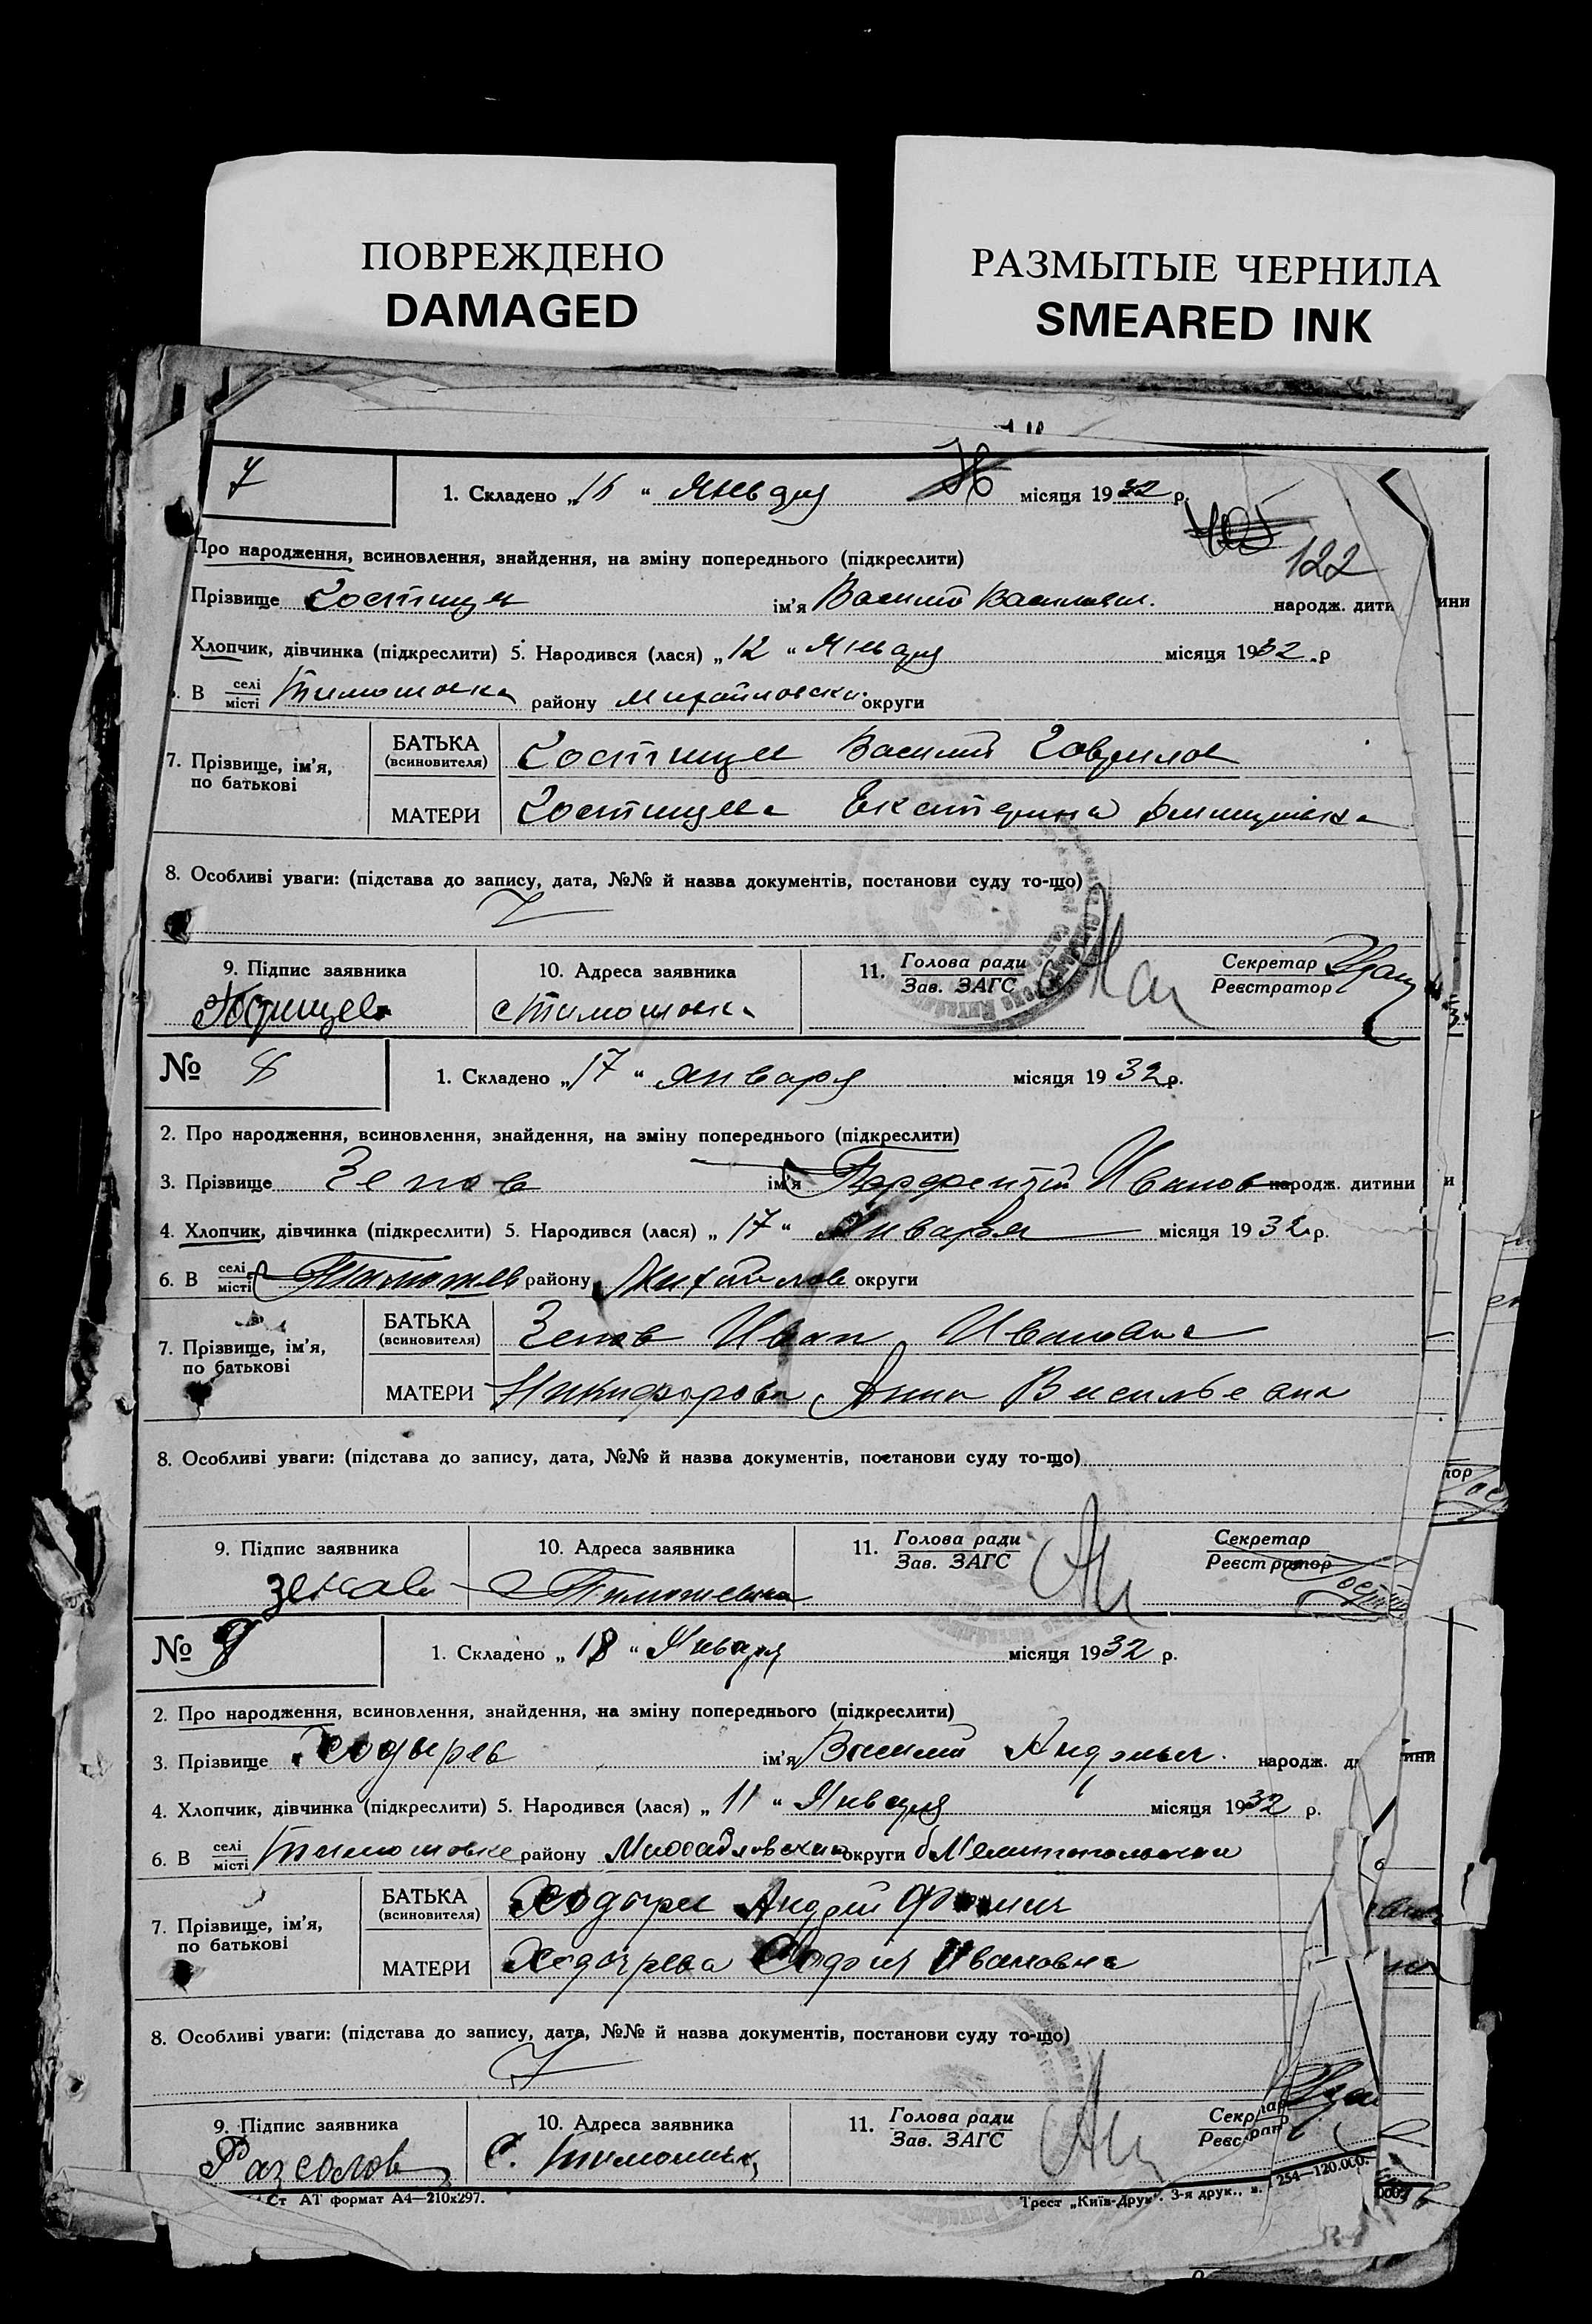 ПОВРЕЖДЕНО
DAMAGED
РАЗМЫТЫЕ ЧЕРНИЛА
SMEARED INK
7
1. Складено „16 “ Января місяця 1932 р.
122
Про народження, всиновлення, знайдення, на зміну попереднього (підкреслити)
Прізвище ім'я Василий Васильевич. народж. дити ини
Хлопчик, дівчинка (підкреслити) 5. Народився (лася) „ 12 “ Января місяця 1932 .р
. В селі місті Тимошовка району Михайловски округи
7. Прізвище, ім'я, по батькові
БАТЬКА (всиновителя) Василий Гаврилов
МАТЕРИ Екатерина
8. Особливі уваги: (підстава до запису, дата, №№ й назва документів, постанови суду то-що)
9. Підпис заявника
10. Адреса заявника с Тимошовка
11. Голова ради Зав. ЗАГС
Секретар Реєстратор
№ 8
1. Складено „17 “ января місяця 1932 р.
2. Про народження, всиновлення, знайдення, на зміну попереднього (підкреслити)
3. Прізвище Зенов ім'я Иванов народж. дитини и
4. Хлопчик, дівчинка (підкреслити) 5. Народився (лася) „ 17 “ Января місяця 1932 р.
6. В селі місті району Михайлов округи
7. Прізвище, ім'я, по батькові
БАТЬКА (всиновителя) Зенов Иван Иванович
МАТЕРИ Никифорова Анна Васильевна
8. Особливі уваги: (підстава до запису, дата, №№ й назва документів, постанови суду то-що)
9. Підпис заявника Зенов
10. Адреса заявника с Тимошевка
11. Голова ради Зав. ЗАГС
Секретар Реєстратор
№ 9
1. Складено „ 18 “ Января місяця 1932 р.
2. Про народження, всиновлення, знайдення, на зміну попереднього (підкреслити)
3. Прізвище Ходырев ім'я Василий Андреевич. народж. д тини
4. Хлопчик, дівчинка (підкреслити) 5. Народився (лася) „ 11 “ Января місяця 1932 р.
6. В селі місті Тимошовке району округи б Мелитопольский
7. Прізвище, ім'я, по батькові
БАТЬКА (всиновителя) Ходырев Андрей Фомич
МАТЕРИ Ходырева София Ивановна
8. Особливі уваги: (підстава до запису, дата, №№ й назва документів, постанови суду то-що)
9. Підпис заявника
10. Адреса заявника С. Тимошовка
11. Голова ради Зав. ЗАГС
Ст АТ формат А4—210х297.
Трест „Київ-Друк“. 3-я друк., 254—120.000.